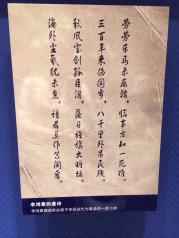 劳劳车马未离鞍，临事方知一死难。
三百年来伤国步，八千里外吊民残。
秋风宝剑孤臣泪，落日旌旗大将坛。
海外尘氛犹未息，诸君莫作等闲看。
李鸿章的遗诗